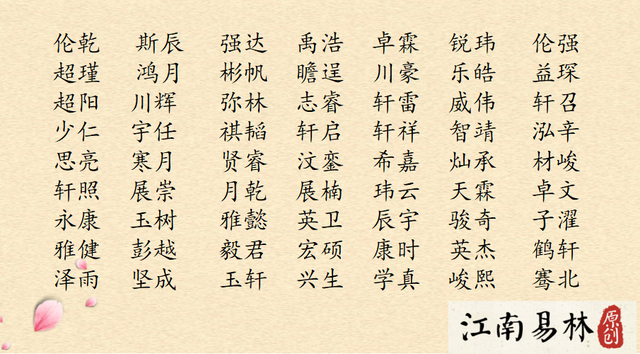 伦乾 斯辰 强达 禹浩 卓霖 锐玮 伦强
超瑾 鸿月 彬帆 瞻逞 川豪 乐皓 益琛
超阳 川辉 弥林 志睿 轩雷 威伟 轩召
少仁 宇任 祺韬 轩启 轩祥 智靖 泓辛
思亮 寒月 贤睿 汶銮 希嘉 灿承 材峻
轩照 展崇 月乾 展楠 玮云 天霖 卓文
永康 玉树 雅懿 英卫 辰宇 骏奇 子濯
雅健 彭越 毅君 宏硕 康时 英杰 鹤轩
泽雨 坚成 玉轩 兴生 学真 峻熙 骞北
江南易林 原创